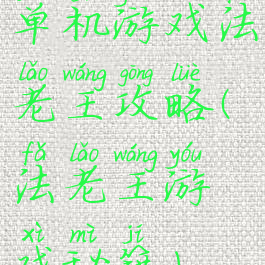 单机游戏法
lǎo wáng gōng lüè
老王攻略(
fǎ lǎo wáng yóu
法老王游
xì mì jí
戏秘籍)